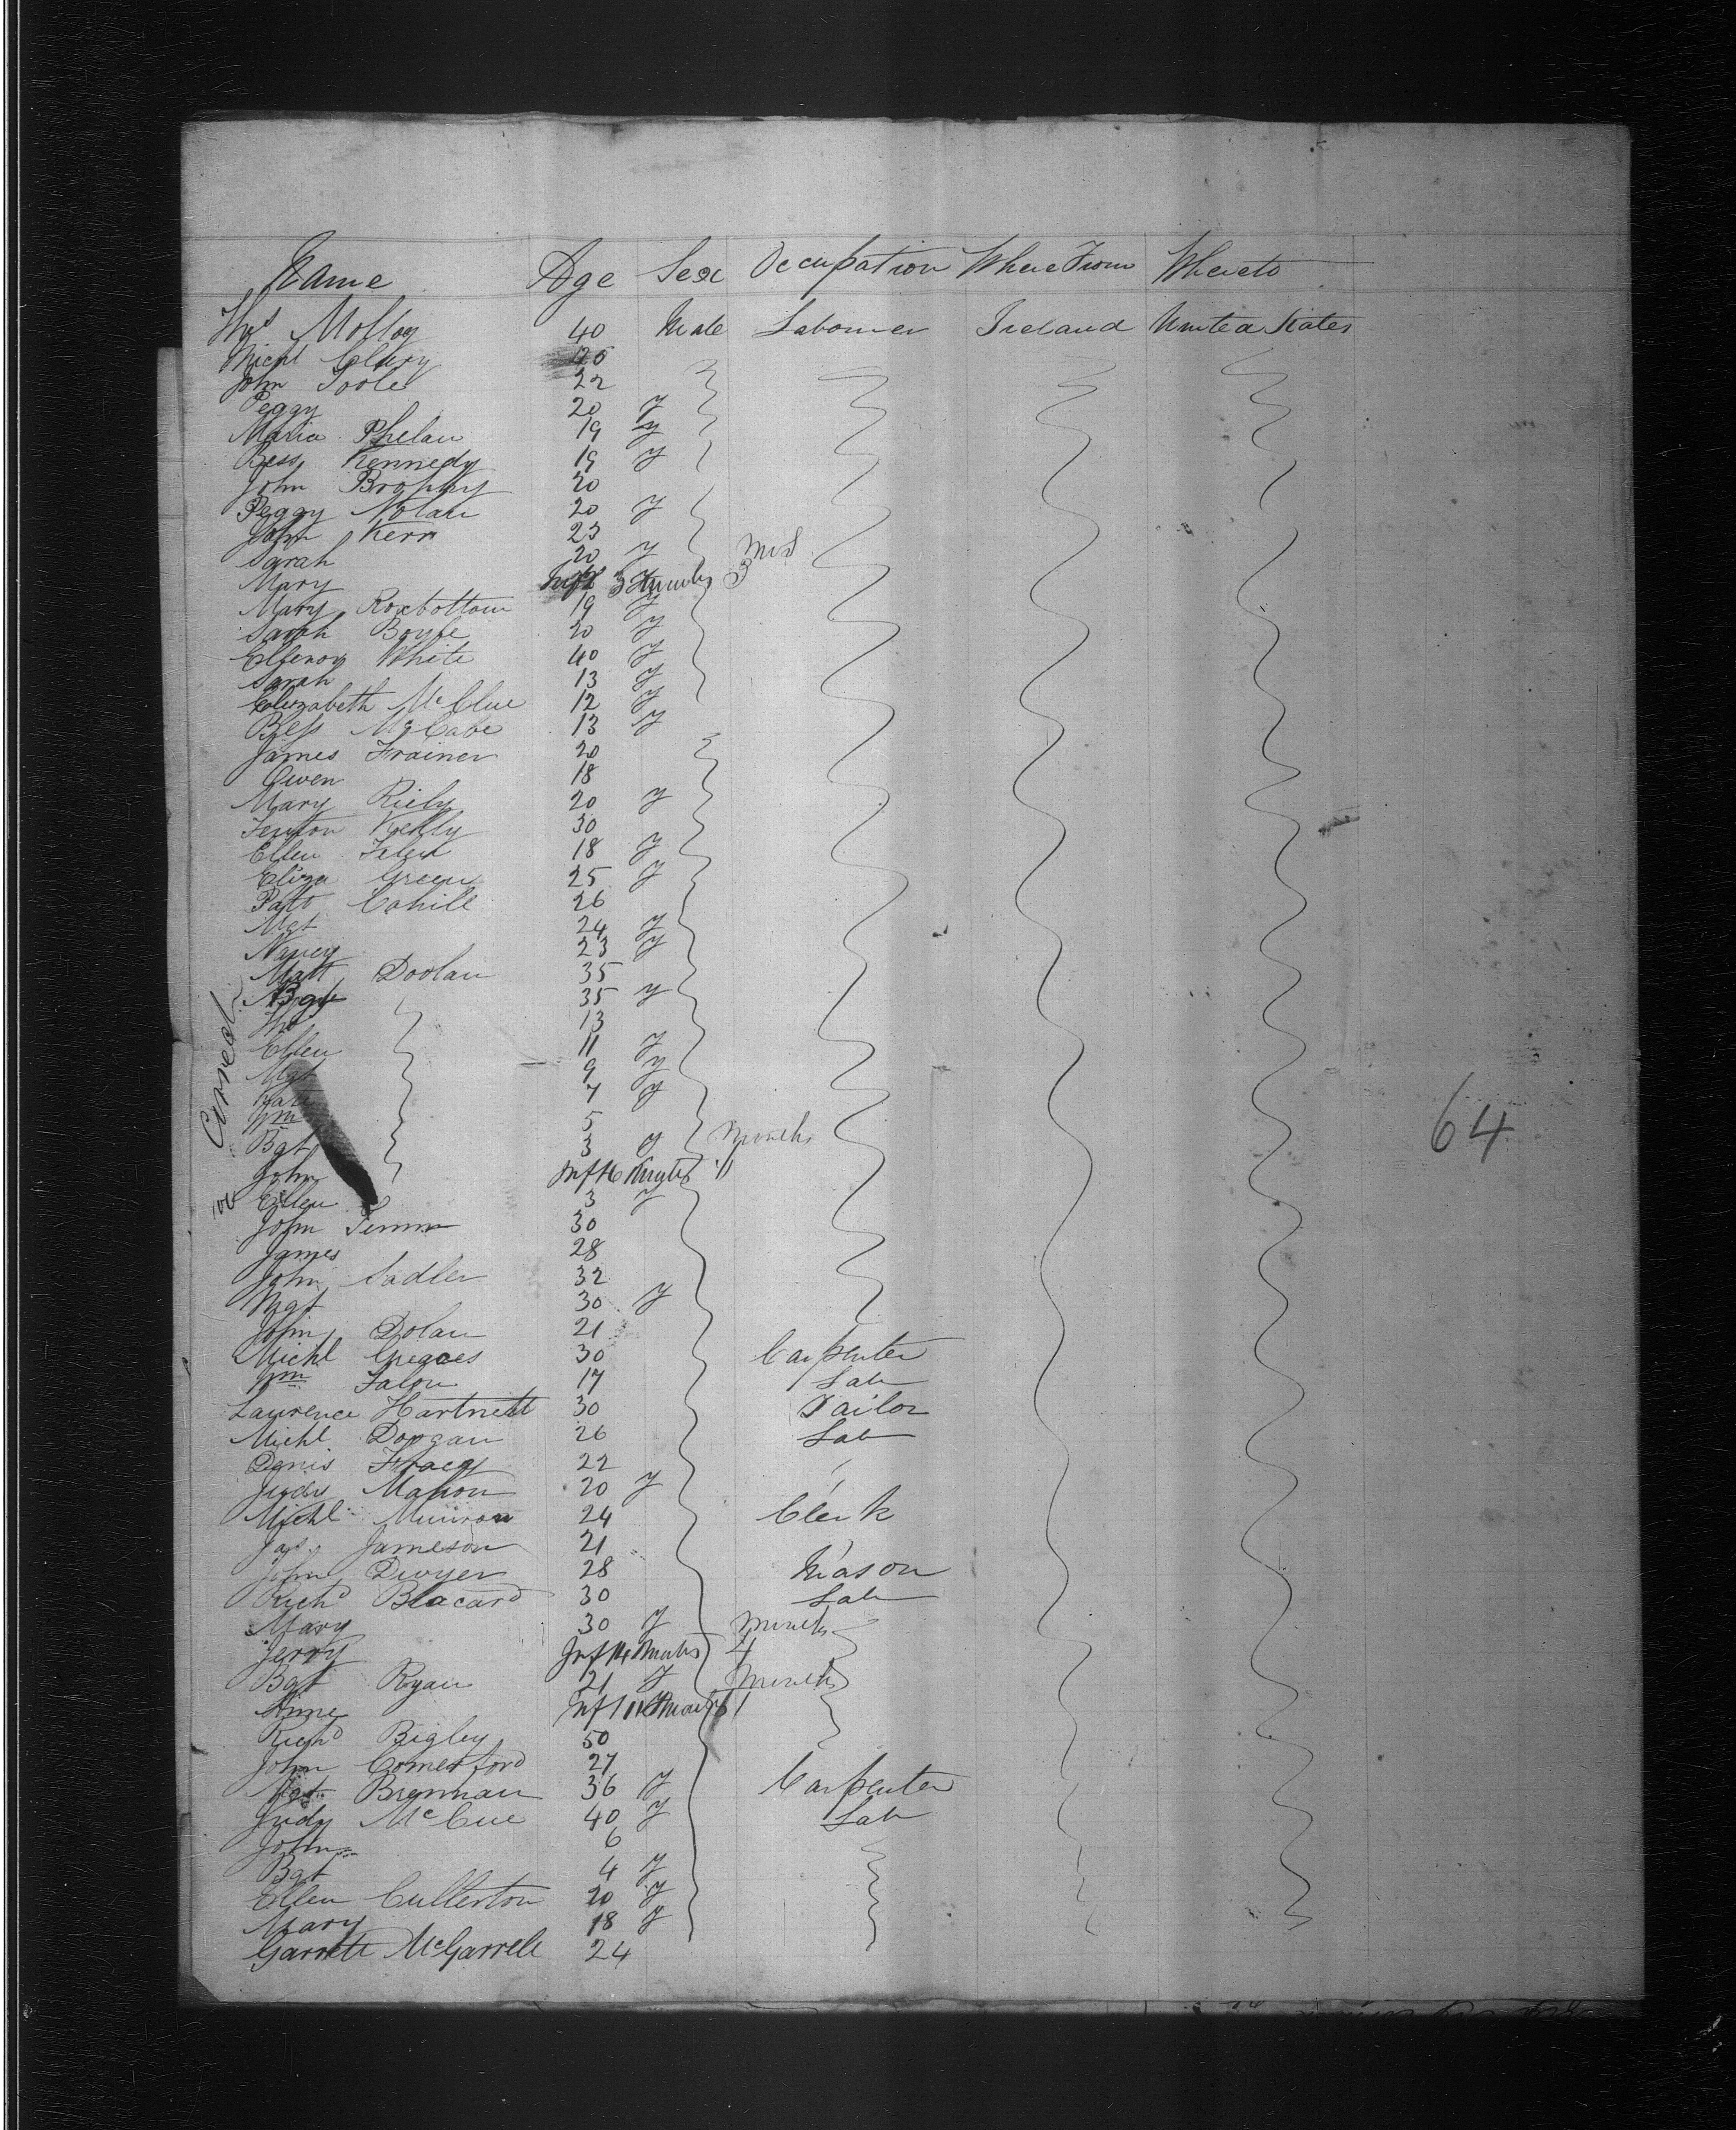 Name Age Sex Occupation Where From Whereto
Thos Molloy 40 Male Labourer Ireland United States
Michl Cleary 25
John Toole 22
Peggy 20 f
Maria Phelan 19 f
Bess Kennedy 19 f
John Brophy 20
Peggy Nolan 20 f
John Kerr 23
Sarah 20 f
Mary Inft 3 Months 3
Mary Roxbottom 19 f
Sarah Boyle 20 f
Ellenor White 40 f
Sarah 13 f
Elizabeth McClue 12 f
Bess McCabe 13 f
James Frainer 20
Owen 18
Mary Riely 20 f
Fenton Kelly 30
Ellen 18 f
Eliza Green 25 f
Patt Cahill 26
Mgt 24 f
Nancy 23 f
Matt Doolan 35
Bgt 35 f
Thos 13
Ellen 11 f
Mgt 9 f
7 f
Wm 5
Bgt 3 f Months
John Inft
Ellen 3 f
John 30
James 28
John Sadler 32
Mgt 30 f
John Dolan 21
Michl 30 Carpenter
Wm Falon 17 Lab
Laurence Hartnett 30 Tailor
Michl Dorgan 26 Lab
Denis Tracy 22
Judy Mahon 20 f
Michl Munroe 24 Clerk
Jas. Jameson 21
John Dwyer 28 Mason
Richd Blacard 30 Lab
Mary 30 f Months
Jerry Inft 4 Months 4
Bgt Ryan 21 f Months
Anne Inft 11 Months 11
Richd Bigley 50
John Comerford 27
Mgt Brennan 36 f Carpenter
Judy McCue 40 f Lab
John 6
Bgt 4 f
Ellen Cullerton 20 f
Mary 18 f
Garrett McGarrell 24
64